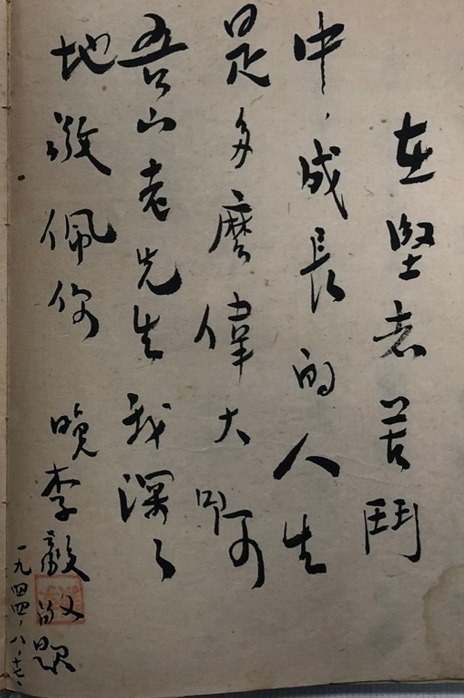 在堅忍苦鬥
中，成長的人生
是多麼偉大啊
吾山老先生我深々
地敬佩你
晚李毅敬題
一九四四、八、十七、